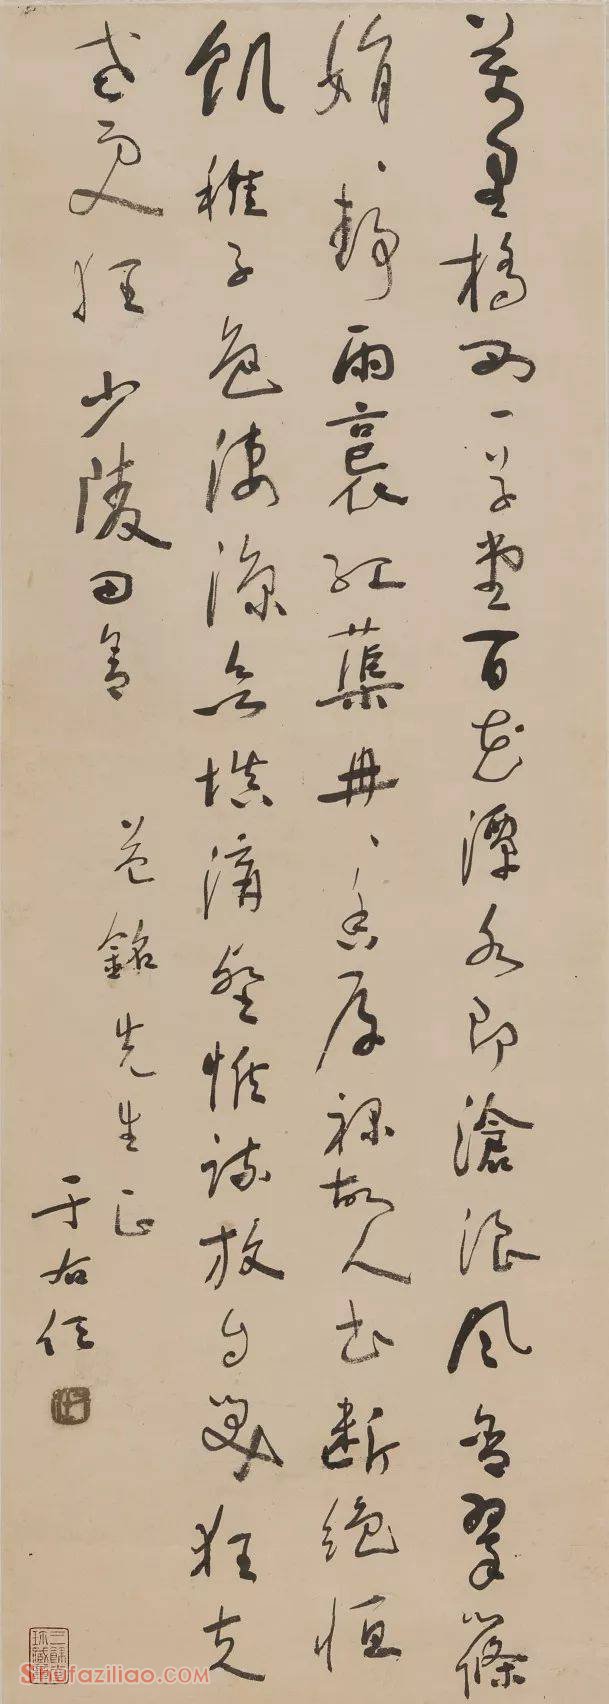 萬里橋西一草堂百花潭水即滄浪風含翠篠
娟、靜雨裛紅蕖冉、香厚祿故人書斷絕恆
飢稚子色淒涼欲填溝壑惟疏放自笑狂夫
老更狂 少陵田舍
芝銘先生正
于右任
Shufaziliao.com